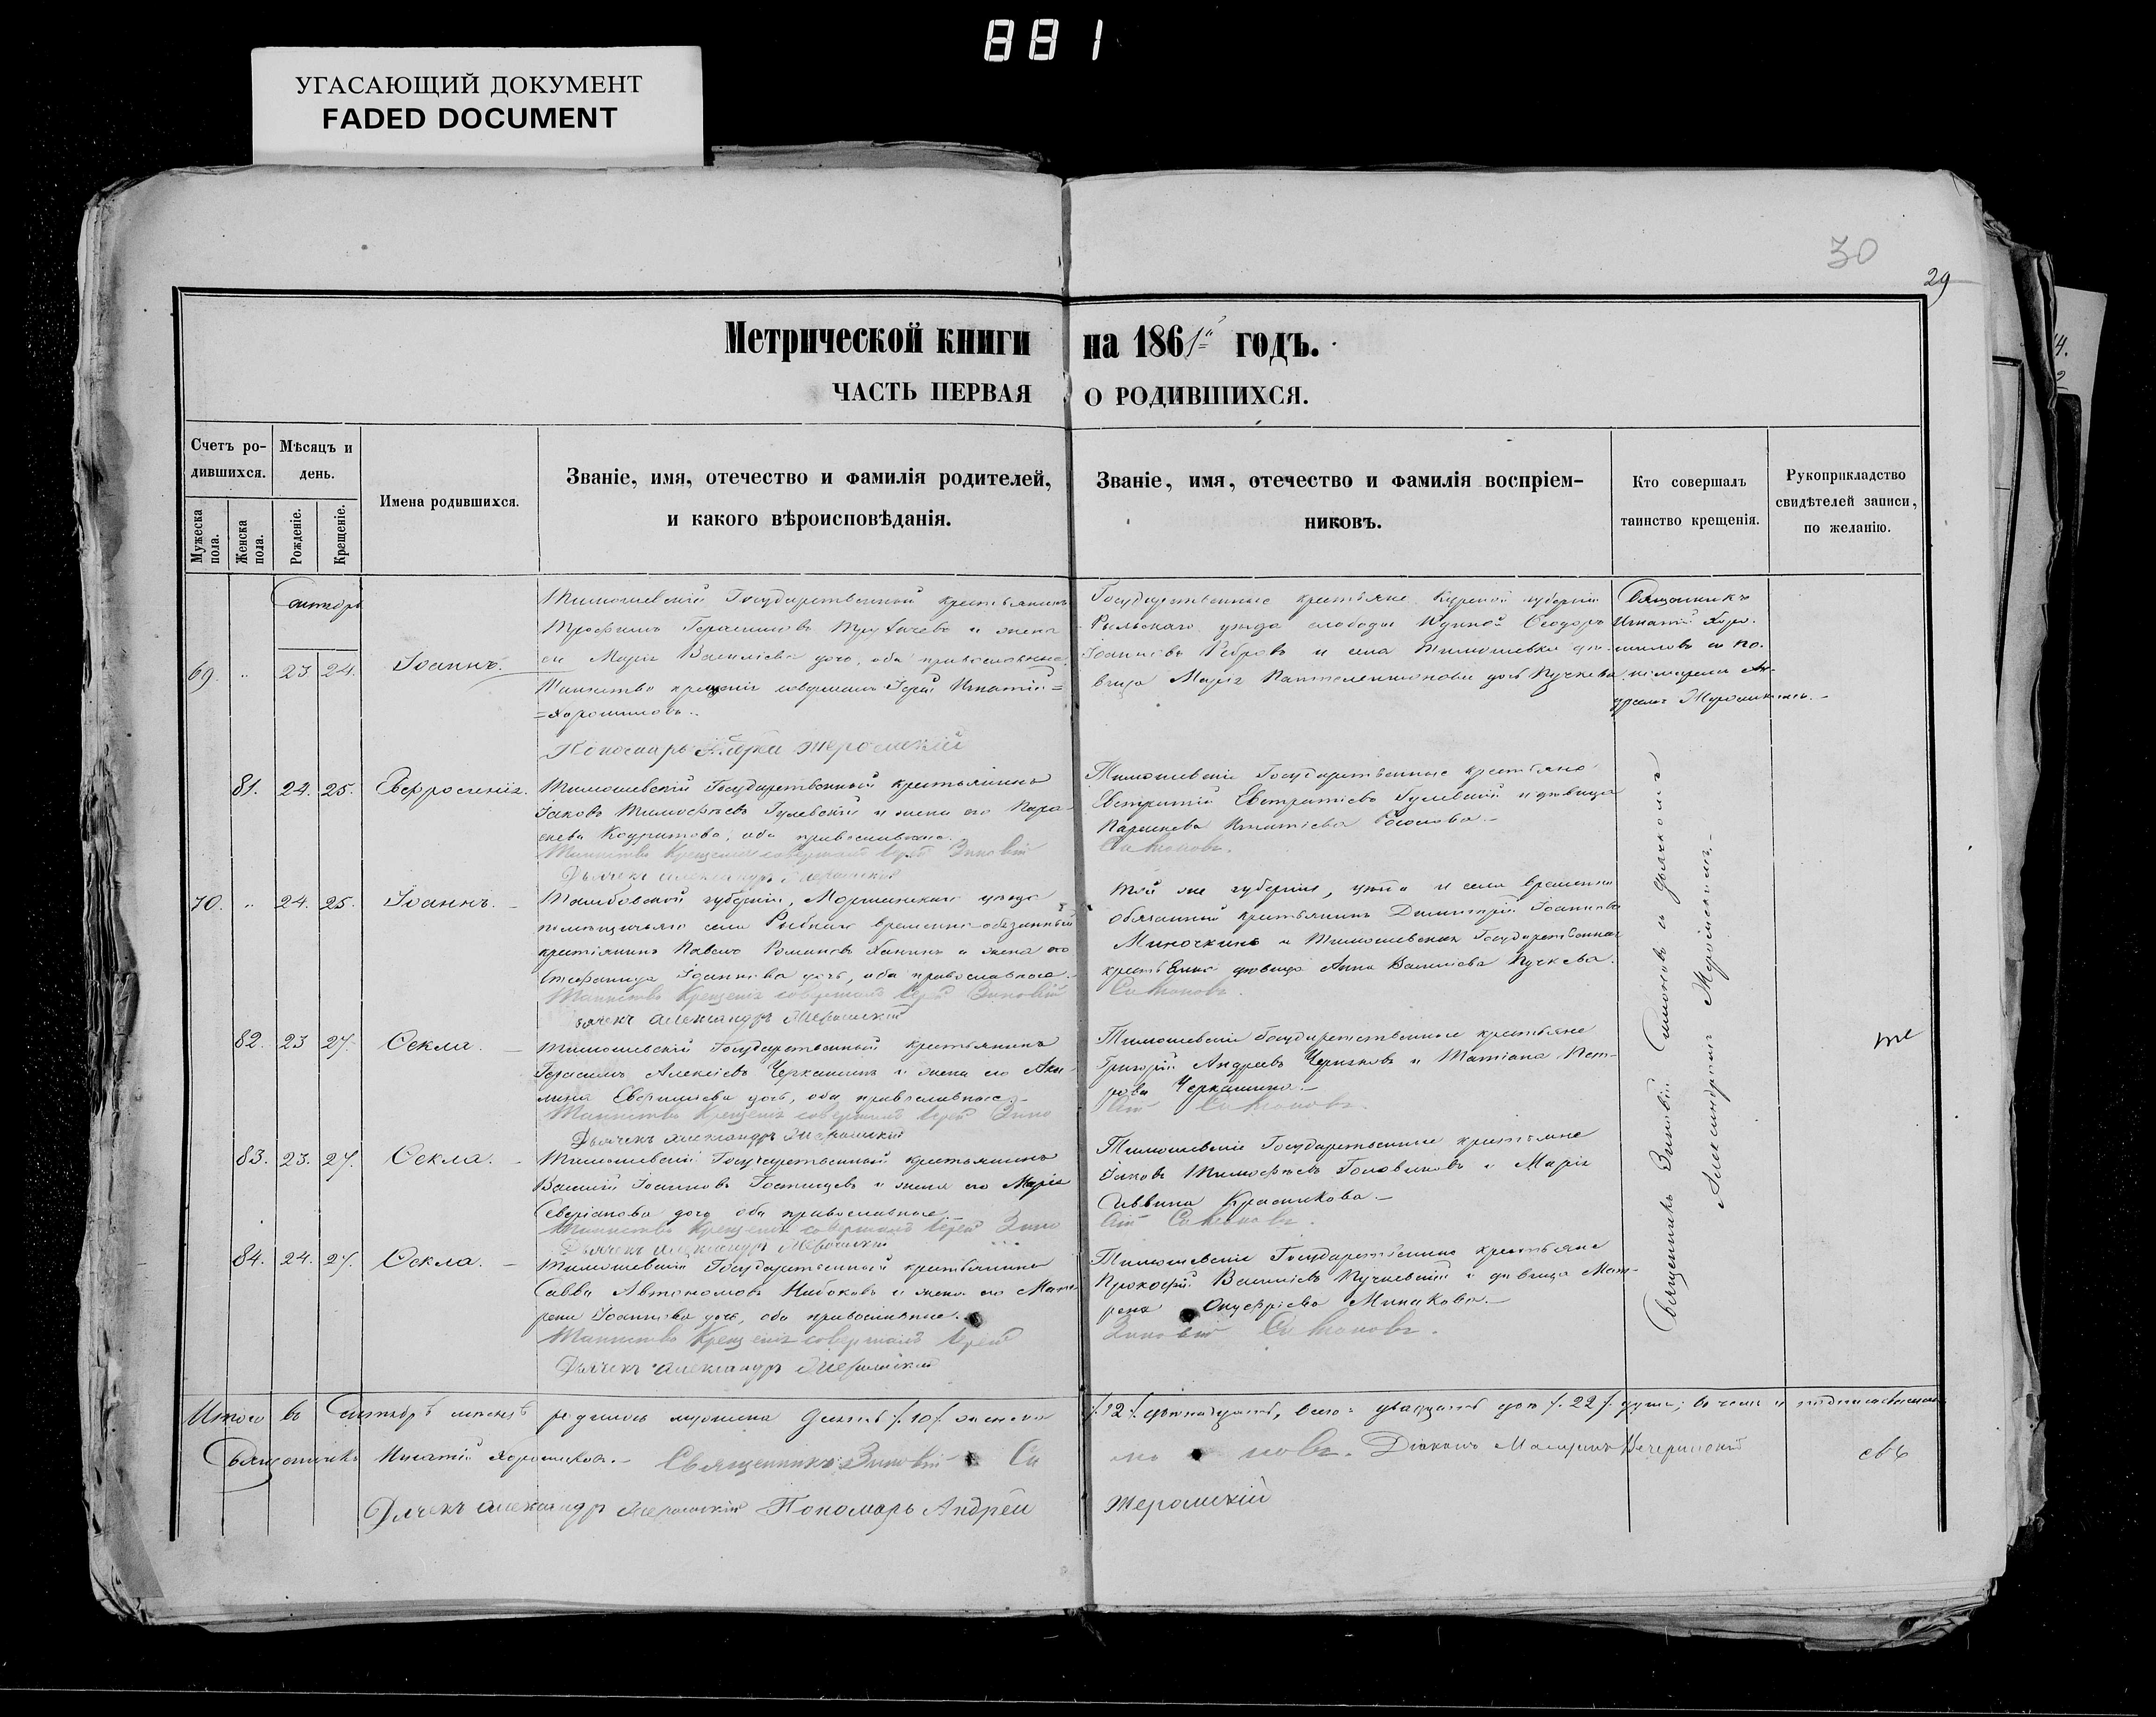 881
УГАСАЮЩИЙ ДОКУМЕНТ
FADED DOCUMENT
30
29
Метрической книги на 1861 годъ.
ЧАСТЬ ПЕРВАЯ О РОДИВШИХСЯ.
Счетъ ро-
дившихся.
Мѣсяцъ и
день.
Мужеска
пола.
Женска
пола.
Рожденіе.
Крещеніе.
Имена родившихся.
Званіе, имя, отечество и фамилія родителей,
и какого вѣроисповѣданія.
Званіе, имя, отечество и фамилія воспріем-
никовъ.
Кто совершалъ
таинство крещенія.
Рукоприкладство
свидѣтелей записи,
по желанію.
69. " 23 24. Іоаннъ.
Государственный крестьянинъ
Трофимъ Герасимовъ и жена
его Марія Василіева дочь, оба православные.
Таинство крещенія совершалъ Іерей Игнатій
Хорошиловъ.
Пономарь Жеромскій
Государственные крестьяне Курской губерніи
Рыльскаго уѣзда слободы Ѳеодоръ
Іоанновъ и села Тимошевки дѣ-
вица Марія Пантелеимонова дочь Пучкова
Священникъ
Игнатій Хоро-
шиловъ и по-
номаремъ Ан-
дреемъ Жеромскимъ.
81. 24. 25. Евфросинія.
Тимошевскій Государственный крестьянинъ
Іаковъ Тимофѣевъ Гулевскій и жена его Пара-
скева Кодратова, оба православные.
Таинство Крещенія совершалъ Іерей Зиновій
Дьячекъ Александръ Жеромскій
Тимошевскіе Государственные крестьяне
Евстратій Евстратіевъ Гулевскій и дѣвица
Параскева Игнатіева
Симоновъ.
70. " 24. 25. Іоаннъ.
Тамбовской губерніи, Моршанскаго уѣзда
села временно-обязанный
крестьянинъ Павелъ Романовъ Ханинъ и жена его
Стефанида Іоаннова дочь, оба православные.
Таинство Крещенія совершалъ Іерей Зиновій
Дьячекъ Александръ Жеромскій
Той же губерніи, уѣзда и села временно
обязанный крестьянинъ Димитрій Іоанновъ
Миночкинъ и Тимошевская Государственная
крестьянка дѣвица Анна Василіева Пучкова.
Симоновъ.
82. 23 27. Ѳекла.
Тимошевскій Государственный крестьянинъ
Герасимъ Алексіевъ Черкашинъ и жена его Аки-
лина Евфиміева дочь, оба православные.
Таинство Крещенія совершалъ Іерей Зино
Дьячекъ Александръ Жеромскій
Тимошевскіе Государственные крестьяне
Григорій Андреевъ и Татіана Пет-
рова Черкашина.
вій Симоновъ.
83. 23. 27. Ѳекла.
Тимошевскій Государственный крестьянинъ
Василій Іоанновъ Гостищевъ и жена его Марія
Северіанова дочь оба православные
Таинство Крещенія совершалъ Іерей Зино
Дьячекъ Александръ Жеромскій
Тимошевскіе Государственные крестьяне
Іаковъ Тимофѣевъ Головинъ и Марія
Саввина Красникова.
вій Симоновъ.
84. 24. 27. Ѳекла.
Тимошевскій Государственный крестьянинъ
Савва Автономовъ Набоковъ и жена его Мат-
рена Іоаннова дочь, оба православные.
Таинство Крещенія совершалъ Іерей
Дьячекъ Александръ Жеромскій
Тимошевскіе Государственные крестьяне
Прокофій Василіевъ и дѣвица Мат-
рена Онуфріева Минакова.
Зиновій Симоновъ.
Священникъ Зиновій Симоновъ съ дьячкомъ
Александромъ Жеромскимъ.
Итого въ Сентябрѣ мѣсяцѣ родилось мужеска десять /10/ женска /12/ двѣнадцать, всего: двадцать два /22/ души; въ чемъ и подписываемся
Священникъ Игнатій Хорошиловъ. Священникъ Зиновій Симоновъ. Діаконъ
Дьячекъ Александръ Жеромскій Пономарь Андрей Жеромскій